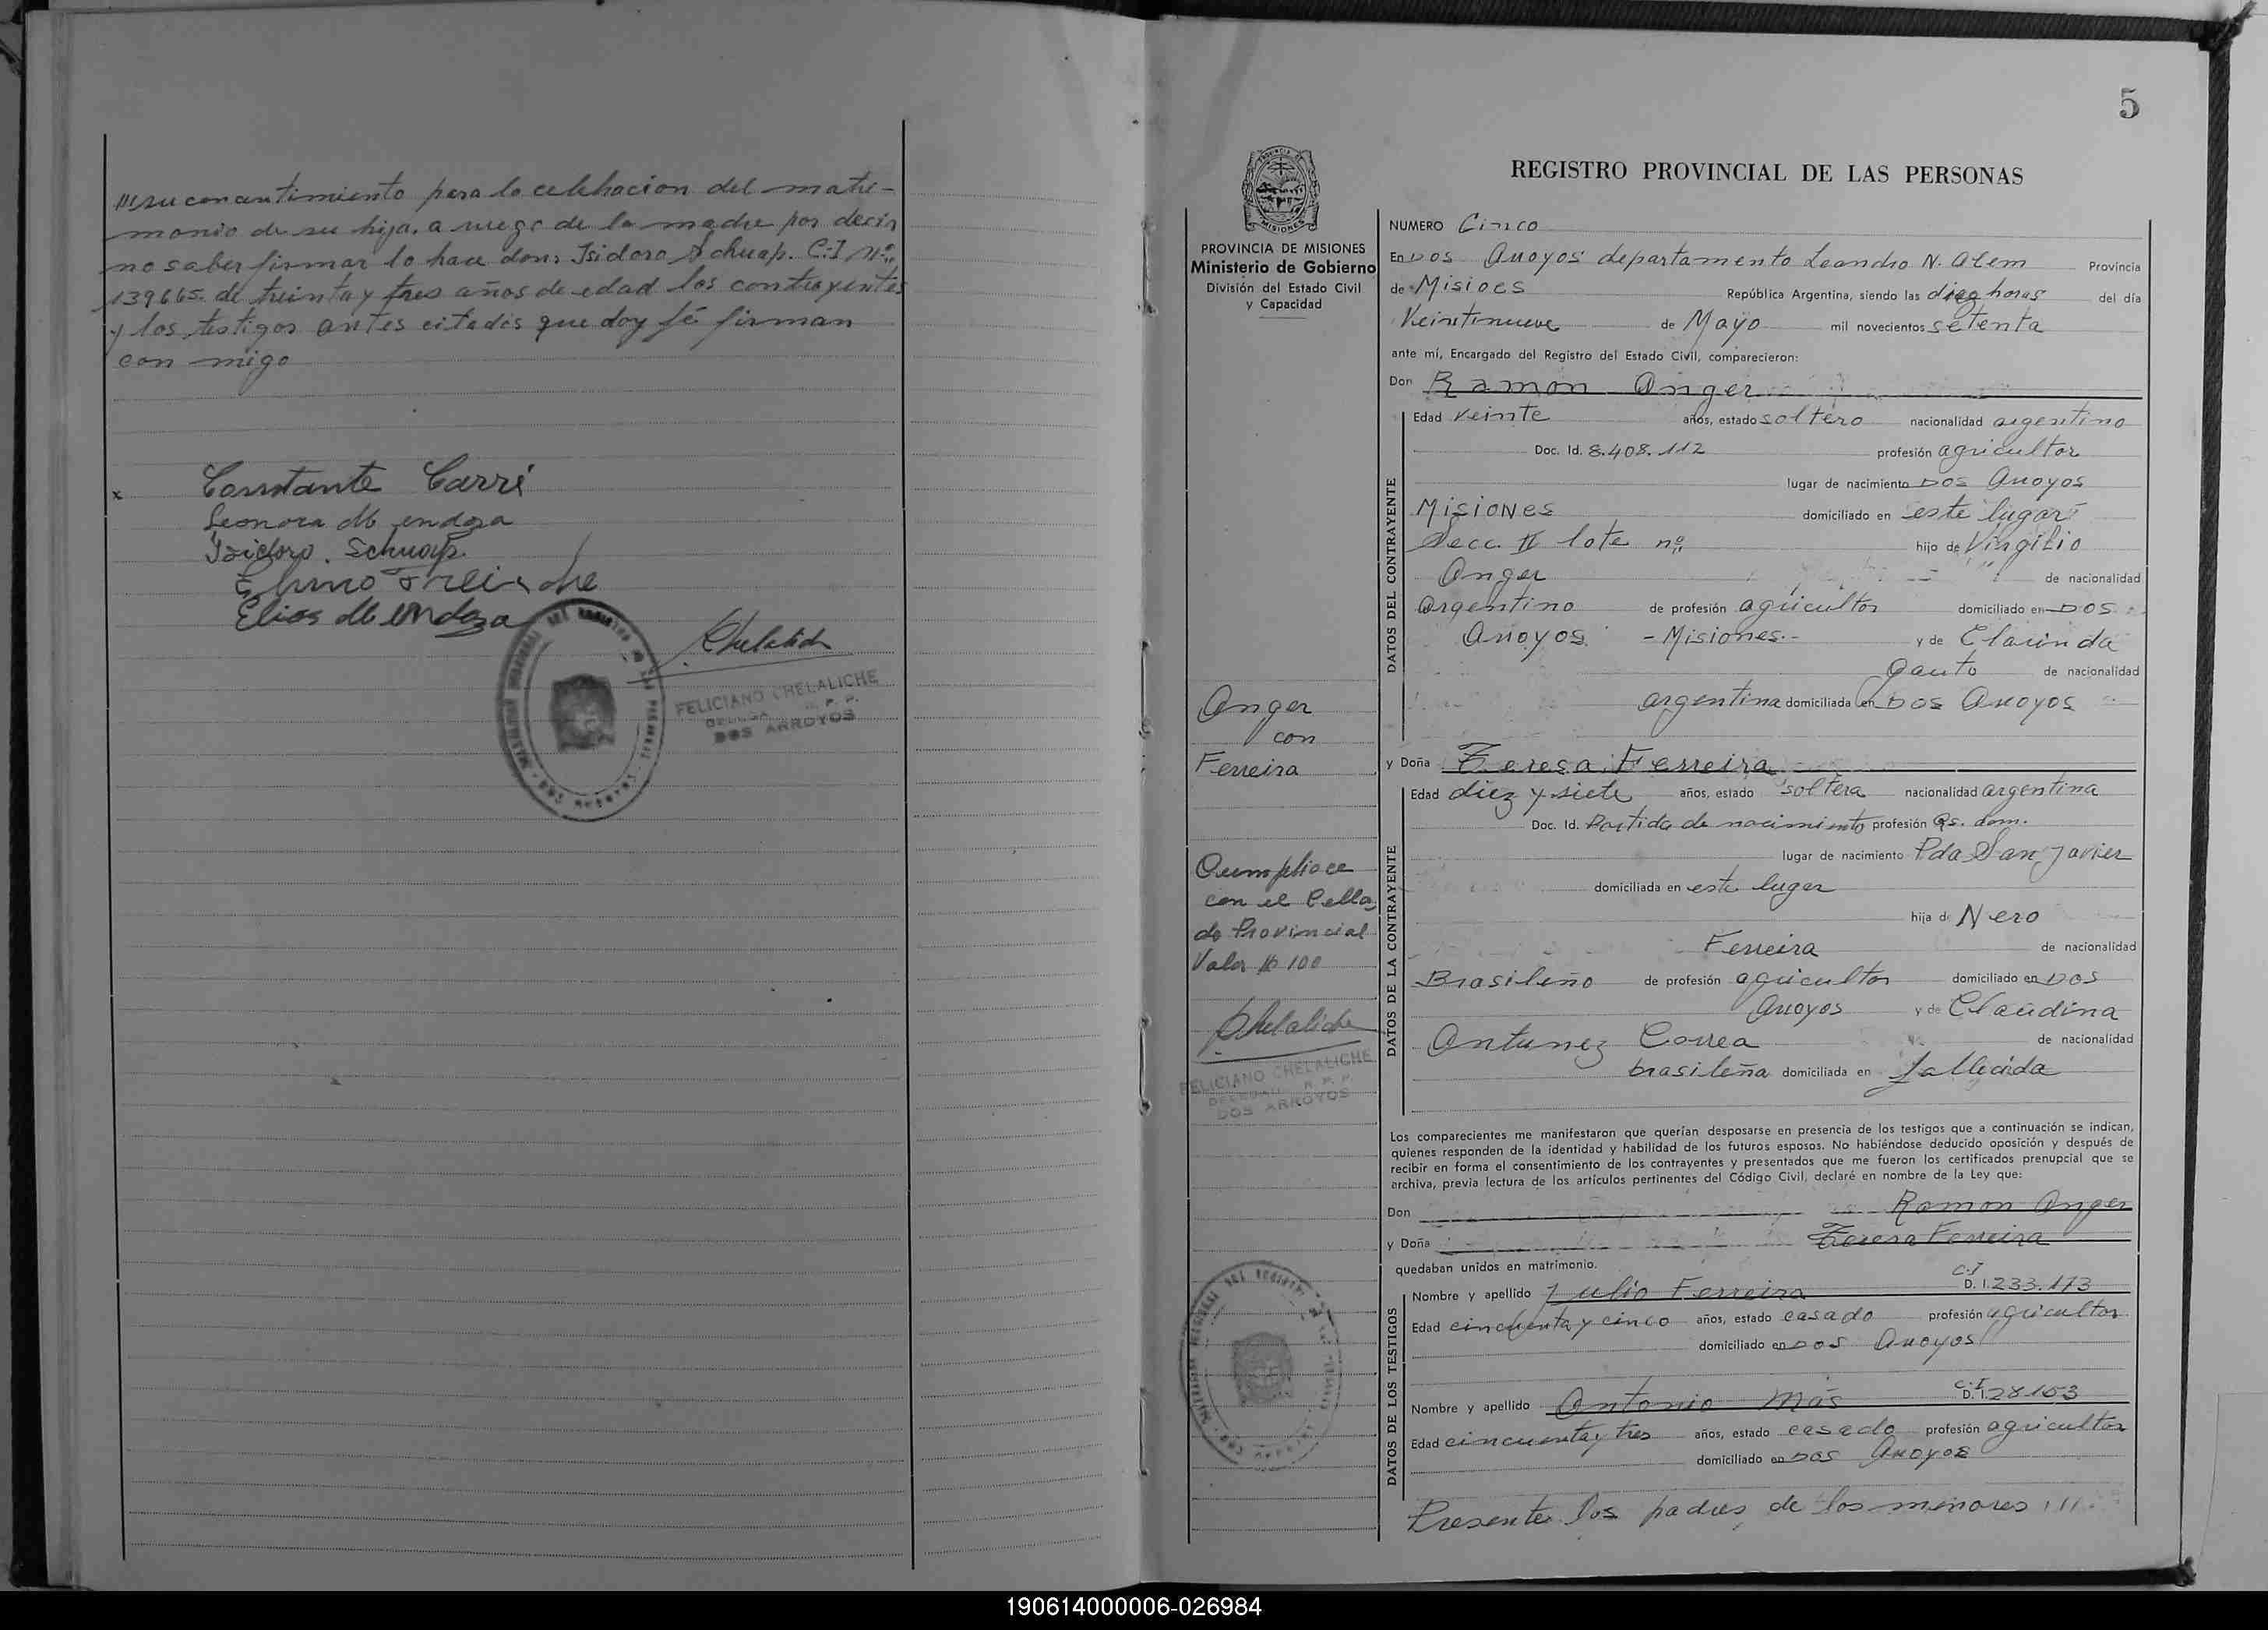 ///su concentimiento para la celebracion del matri-
monio de su hija, a ruego de la madre por decir
no saber firmar lo hace don: Isidoro Schuap. C.I Nº
139665. de treinta y tres años de edad los contrayentes
y los testigos antes citados que doy fé firman
con migo
x Constante Carré
Leonora Mendoza
Isidoro. Schuap.
Elias Mendoza
Chelalich
FELICIANO CHELALICHE
DOS ARROYOS
5
REGISTRO PROVINCIAL DE LAS PERSONAS
PROVINCIA DE MISIONES
Ministerio de Gobierno
División del Estado Civil
y Capacidad
NUMERO Cinco
En Dos Arroyos departamento Leandro N. Alem Provincia
de Misioes República Argentina, siendo las diez horas del día
Veintinueve de Mayo mil novecientos setenta
ante mí, Encargado del Registro del Estado Civil, comparecieron:
Don Ramon Anger
DATOS DEL CONTRAYENTE
Edad veinte años, estado soltero nacionalidad argentino
Doc. Id. 8.408.112 profesión agricultor
lugar de nacimiento Dos Arroyos
Misiones domiciliado en este lugar
Secc. II lote nº hijo de Virgilio
Anger de nacionalidad
argentino de profesión agricultor domiciliado en Dos
Arroyos - Misiones.- y de Clarinda
Gauto de nacionalidad
argentina domiciliada en Dos Arroyos
Anger
con
Ferreira
y Doña Teresa Ferreira
DATOS DE LA CONTRAYENTE
Edad diez y siete años, estado soltera nacionalidad argentina
Doc. Id. Partida de nacimiento profesión Qs. dom.
lugar de nacimiento Pda San Javier
domiciliada en este lugar
hija de Nero
Ferreira de nacionalidad
Brasileño de profesión agricultor domiciliado en Dos
Arroyos y de Claudina
Antunez Correa de nacionalidad
brasileña domiciliada en fallecida
con el Cella
do Provincial
Valor $ 100
Chelaliche
FELICIANO CHELALICHE
DOS ARROYOS
Los comparecientes me manifestaron que querían desposarse en presencia de los testigos que a continuación se indican,
quienes responden de la identidad y habilidad de los futuros esposos. No habiéndose deducido oposición y después de
recibir en forma el consentimiento de los contrayentes y presentados que me fueron los certificados prenupcial que se
archiva, previa lectura de los artículos pertinentes del Código Civil, declaré en nombre de la Ley que:
Don Ramon Anger
y Doña Teresa Ferreira
quedaban unidos en matrimonio.
DATOS DE LOS TESTIGOS
C.I
Nombre y apellido Julio Ferreira D. I. 233.173
Edad cincuenta y cinco años, estado casado profesión agricultor
domiciliado en Dos Arroyos
C.I
Nombre y apellido Antonio Más D. I. 28153
Edad cincuenta y tres años, estado casado profesión agricultor
domiciliado en Dos Arroyos
Presente los padres de los menores ///.
190614000006-026984